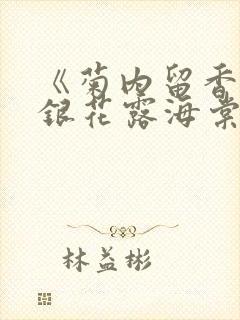 《菊内留香
銀花露海棠
林益彬